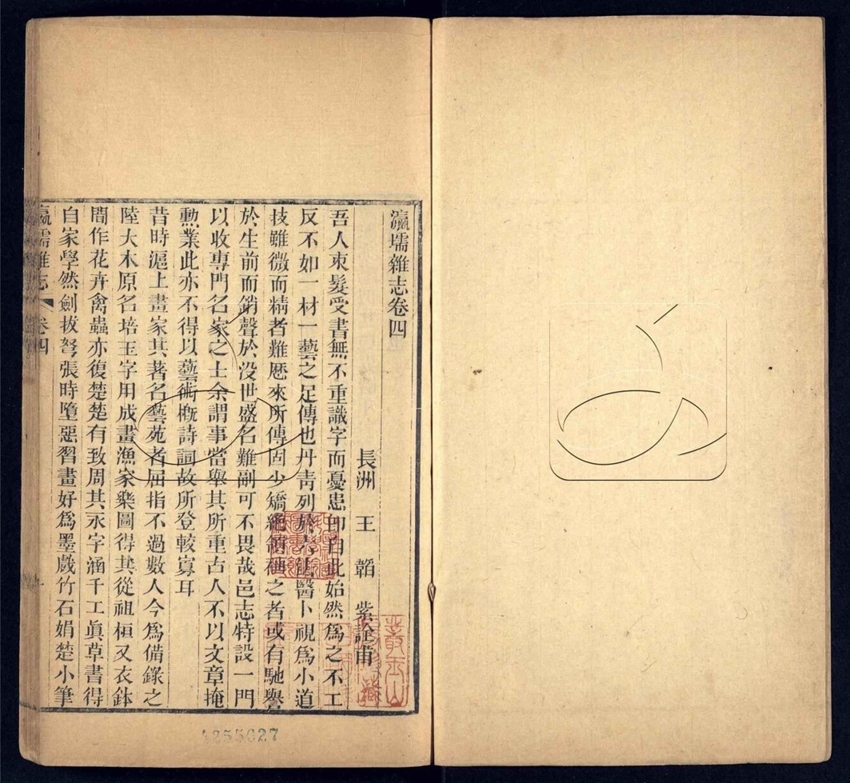 瀛壖雜志卷四
長洲 王韜 紫詮甫
吾人束髮受書無不重識字而憂患卽自此始然爲之不工
反不如一材一藝之足傳也丹靑列於
醫卜視爲小道
技雖微而精者難歷來所傳固少矯
之者或有馳譽
於生前而銷聲於沒世盛名難副可不畏哉邑志特設一門
以收專門名家之士余謂事當舉其所重古人不以文章掩
勲業此亦不得以藝術槪詩詞故所登較寡耳
昔時滬上畫家其著名藝苑者屈指不過數人今爲備錄之
陸大木原名培玉字用成畫漁家樂圖得其從祖桓又衣鉢
間作花卉禽蟲亦復楚楚有致周其永字涵千工眞草書得
自家學然劍拔弩張時墮惡習畫好爲墨戲竹石娟楚小筆
瀛壖雜志 卷四
4255627